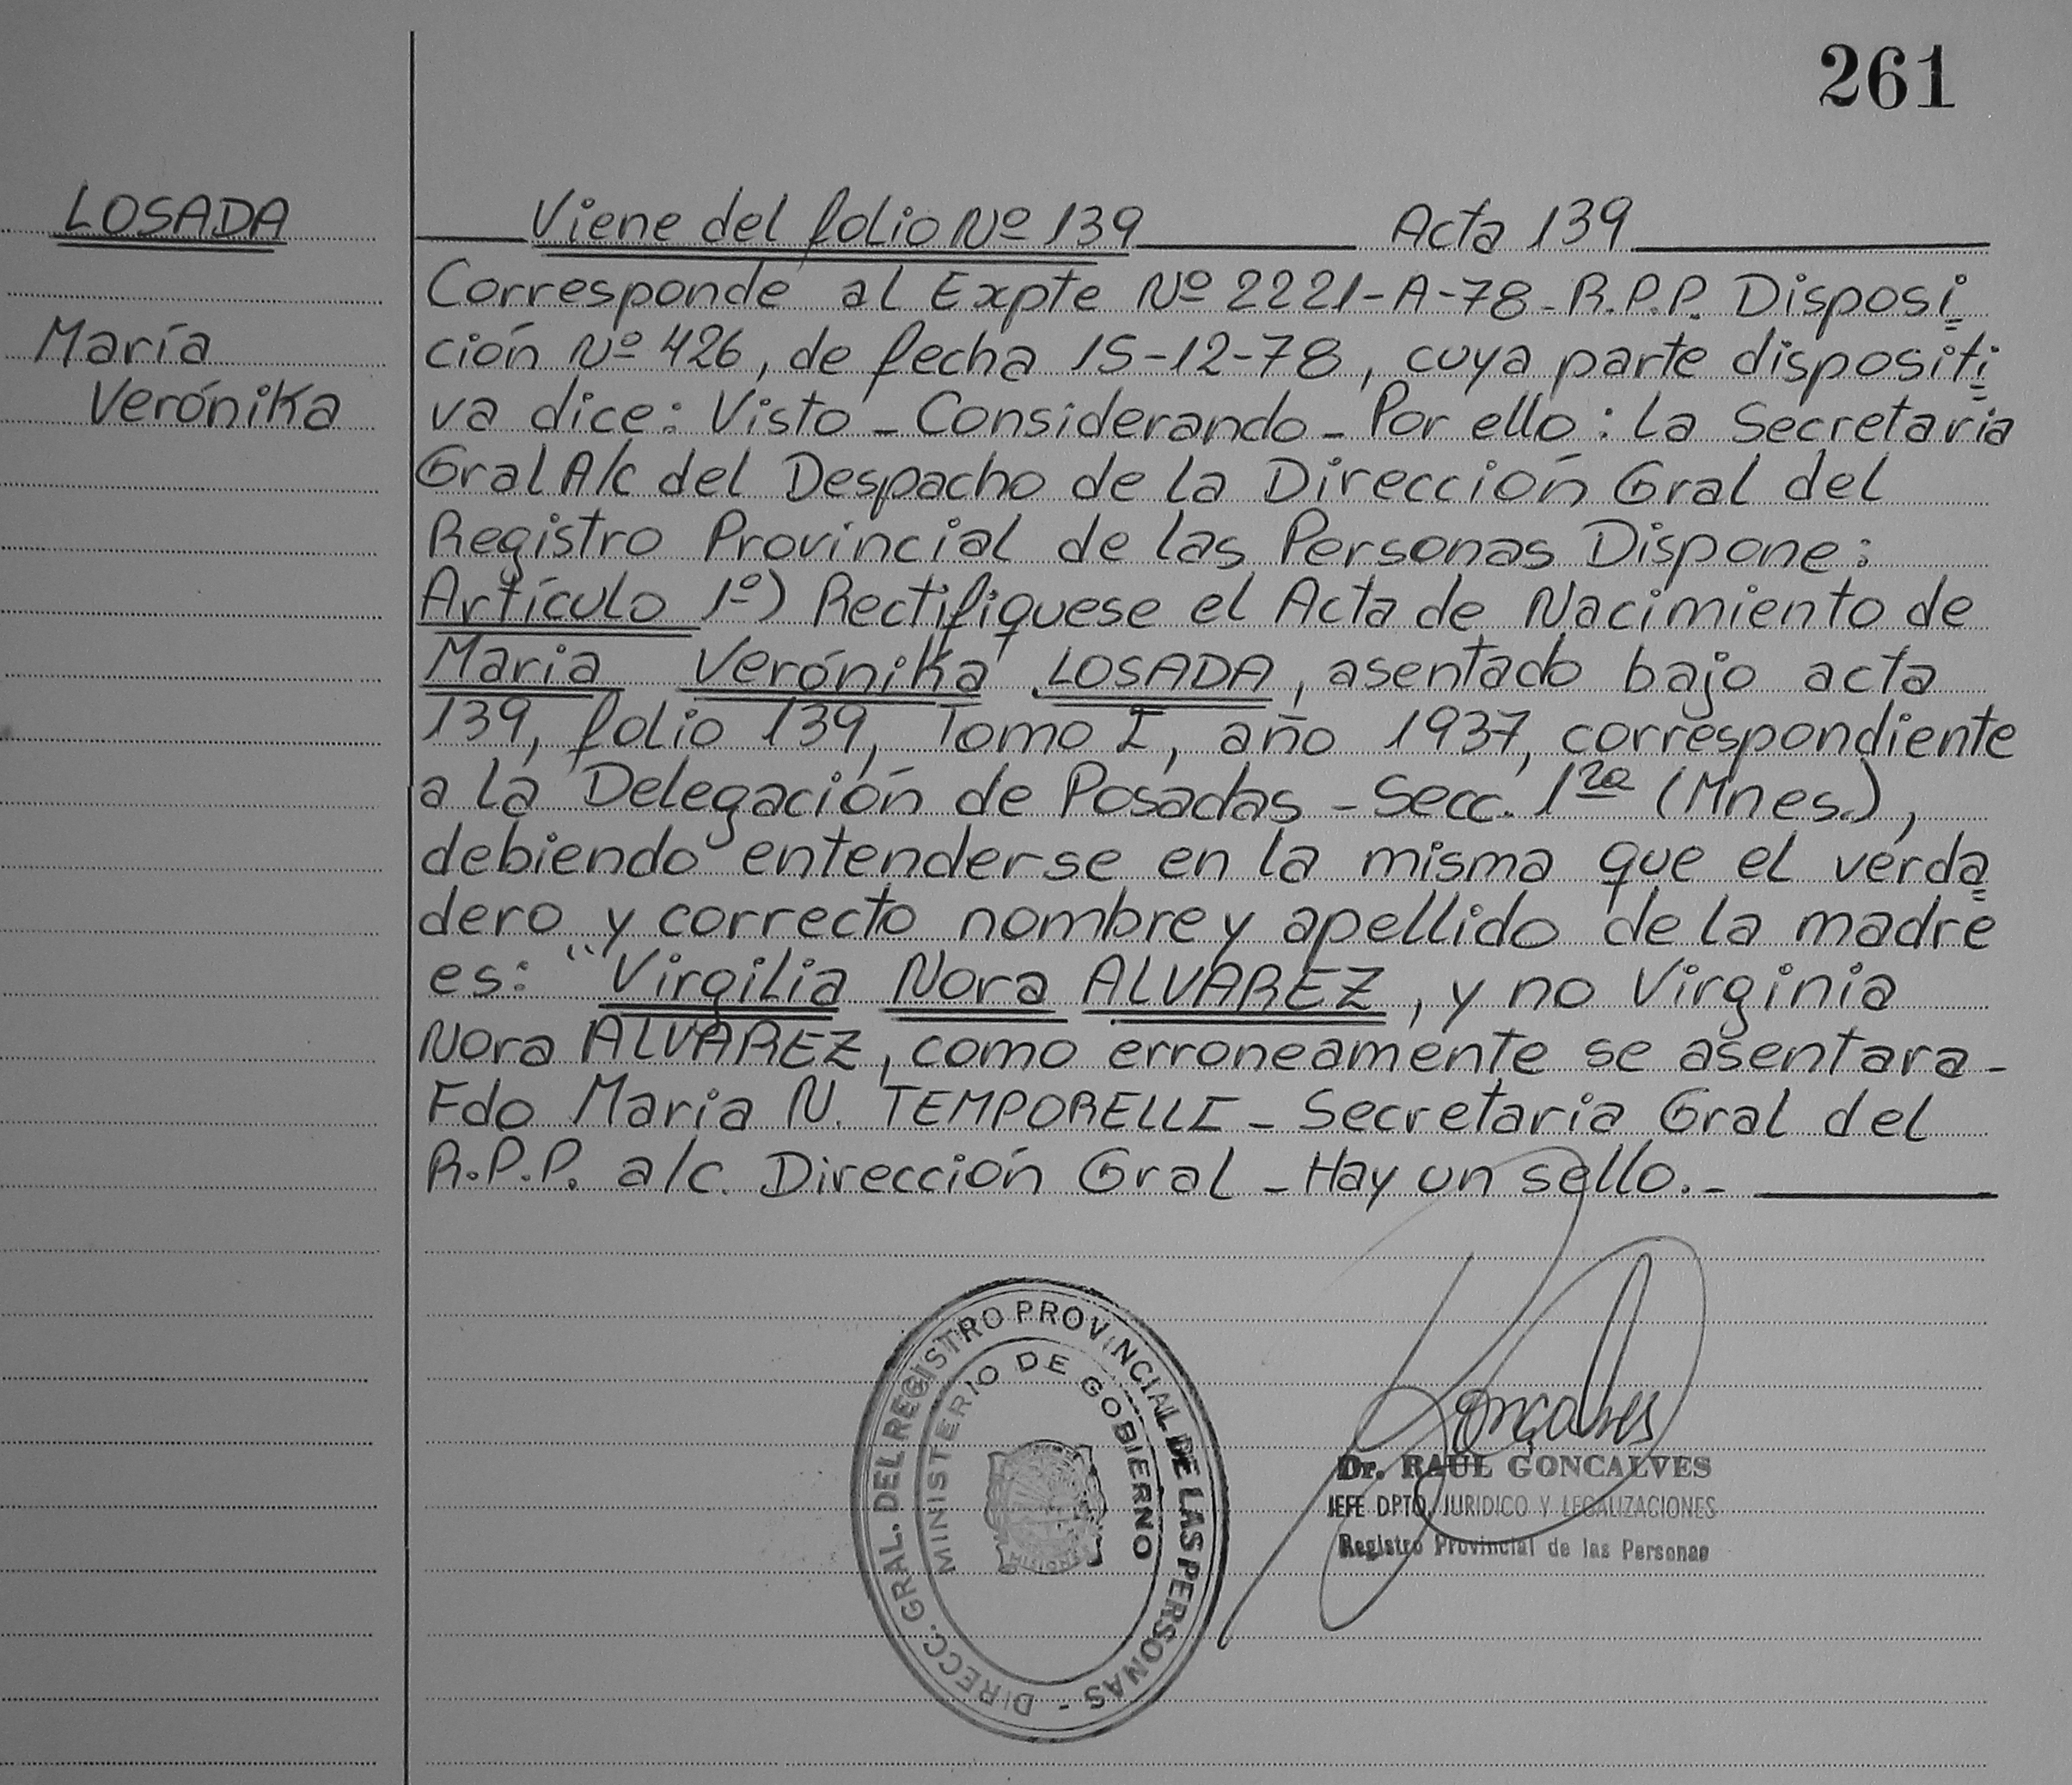 261
LOSADA
María
Verónika
Viene del folio Nº 139 Acta 139
Corresponde al Expte Nº 2221-A-78-R.P.P. Disposi
ción Nº 426, de fecha 15-12-78, cuya parte dispositi
va dice: Visto - Considerando - Por ello: La Secretaria
Gral A/c del Despacho de la Dirección Gral del
Registro Provincial de las Personas Dispone:
Artículo 1º) Rectifiquese el Acta de Nacimiento de
Maria Verónika LOSADA, asentado bajo acta
139, folio 139, Tomo I, año 1937, correspondiente
a la Delegación de Posadas - Secc. 1ra (Mnes.),
debiendo entenderse en la misma que el verda
dero y correcto nombre y apellido de la madre
es: "Virgilia Nora ALVAREZ, y no Virginia
Nora ALVAREZ, como erroneamente se asentara -
Fdo Maria N. TEMPORELLI - Secretaria Gral del
R.P.P. a/c. Dirección Gral - Hay un sello. -
DIRECC. GRAL. DEL REGISTRO PROVINCIAL DE LAS PERSONAS -
MINISTERIO DE GOBIERNO
MISIONES
Gonçalves
Dr. RAUL GONCALVES
JEFE DPTO. JURIDICO Y LEGALIZACIONES
Registro Provincial de las Personas